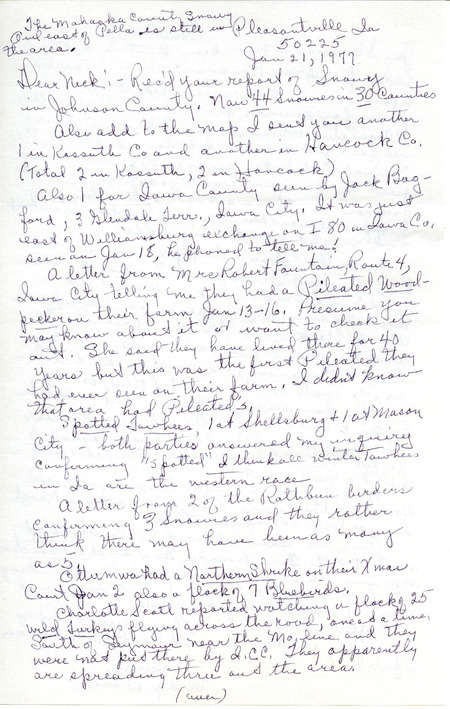 The Mahaska County Snowy
Owl east of Pella is still in
the area.
Pleasantville Ia
50225
Jan 21, 1977
Dear Nick: - Rec'd your report of Snowy
in Johnson County. Now 44 Snowies in 30 Counties
Also add to the map I send you another
1 in Kossuth Co and another in Hancock Co.
(Total 2 in Kossuth, 2 in Hancock)
Also 1 for Iowa County seen by Jack Bag-
ford, 3 Glendale Terr., Iowa City. It was just
east of Williamsburg exchange on I 80 in Iowa Co.
seen on Jan 18, he phoned to tell me!
A letter from Mrs Robert Fountain, Route 4,
Iowa City telling me they had a Pileated Wood-
pecker on their farm Jan 13-16. Presume you
may know about it or want to check it
out. She said they have lived there for 40
years but this was the first Pileated they
had ever seen on their farm. I didn't know
that area had Pileated's.
Spotted Towhees, 1 at Shellsburg & 1 at Mason
City - both parties answered my inquiries
confirming "spotted" I think all winter Towhees
in Ia are the western race.
A letter from 2 of the Rathbun birders
confirming 3 Snowies and they rather
think there may have been as many
as 5.
Ottumwa had a Northern Shrike on their Xmas
Count Jan 2 also a flock of 7 Bluebirds.
Charlotte Scott reported watching a flock of 25
wild Turkeys flying across the road, one at a time,
South of Seymour near the Mo. line and they
were not put there by I.C.C. They apparently
are spreading thru out the area.
(over)